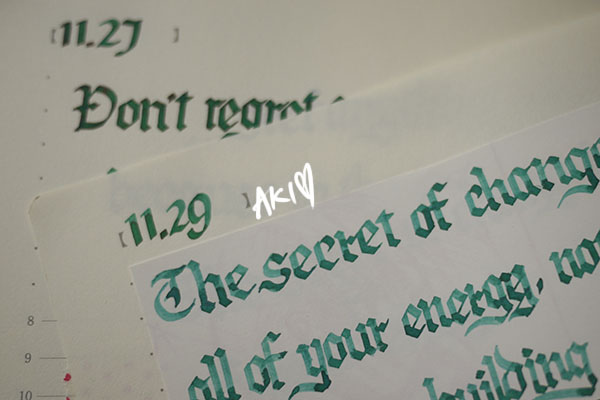 [11.27 ]
Don't regret
[11.29 ]
AKI♡
The secret of change
all of your energy, not
building
8
9
10